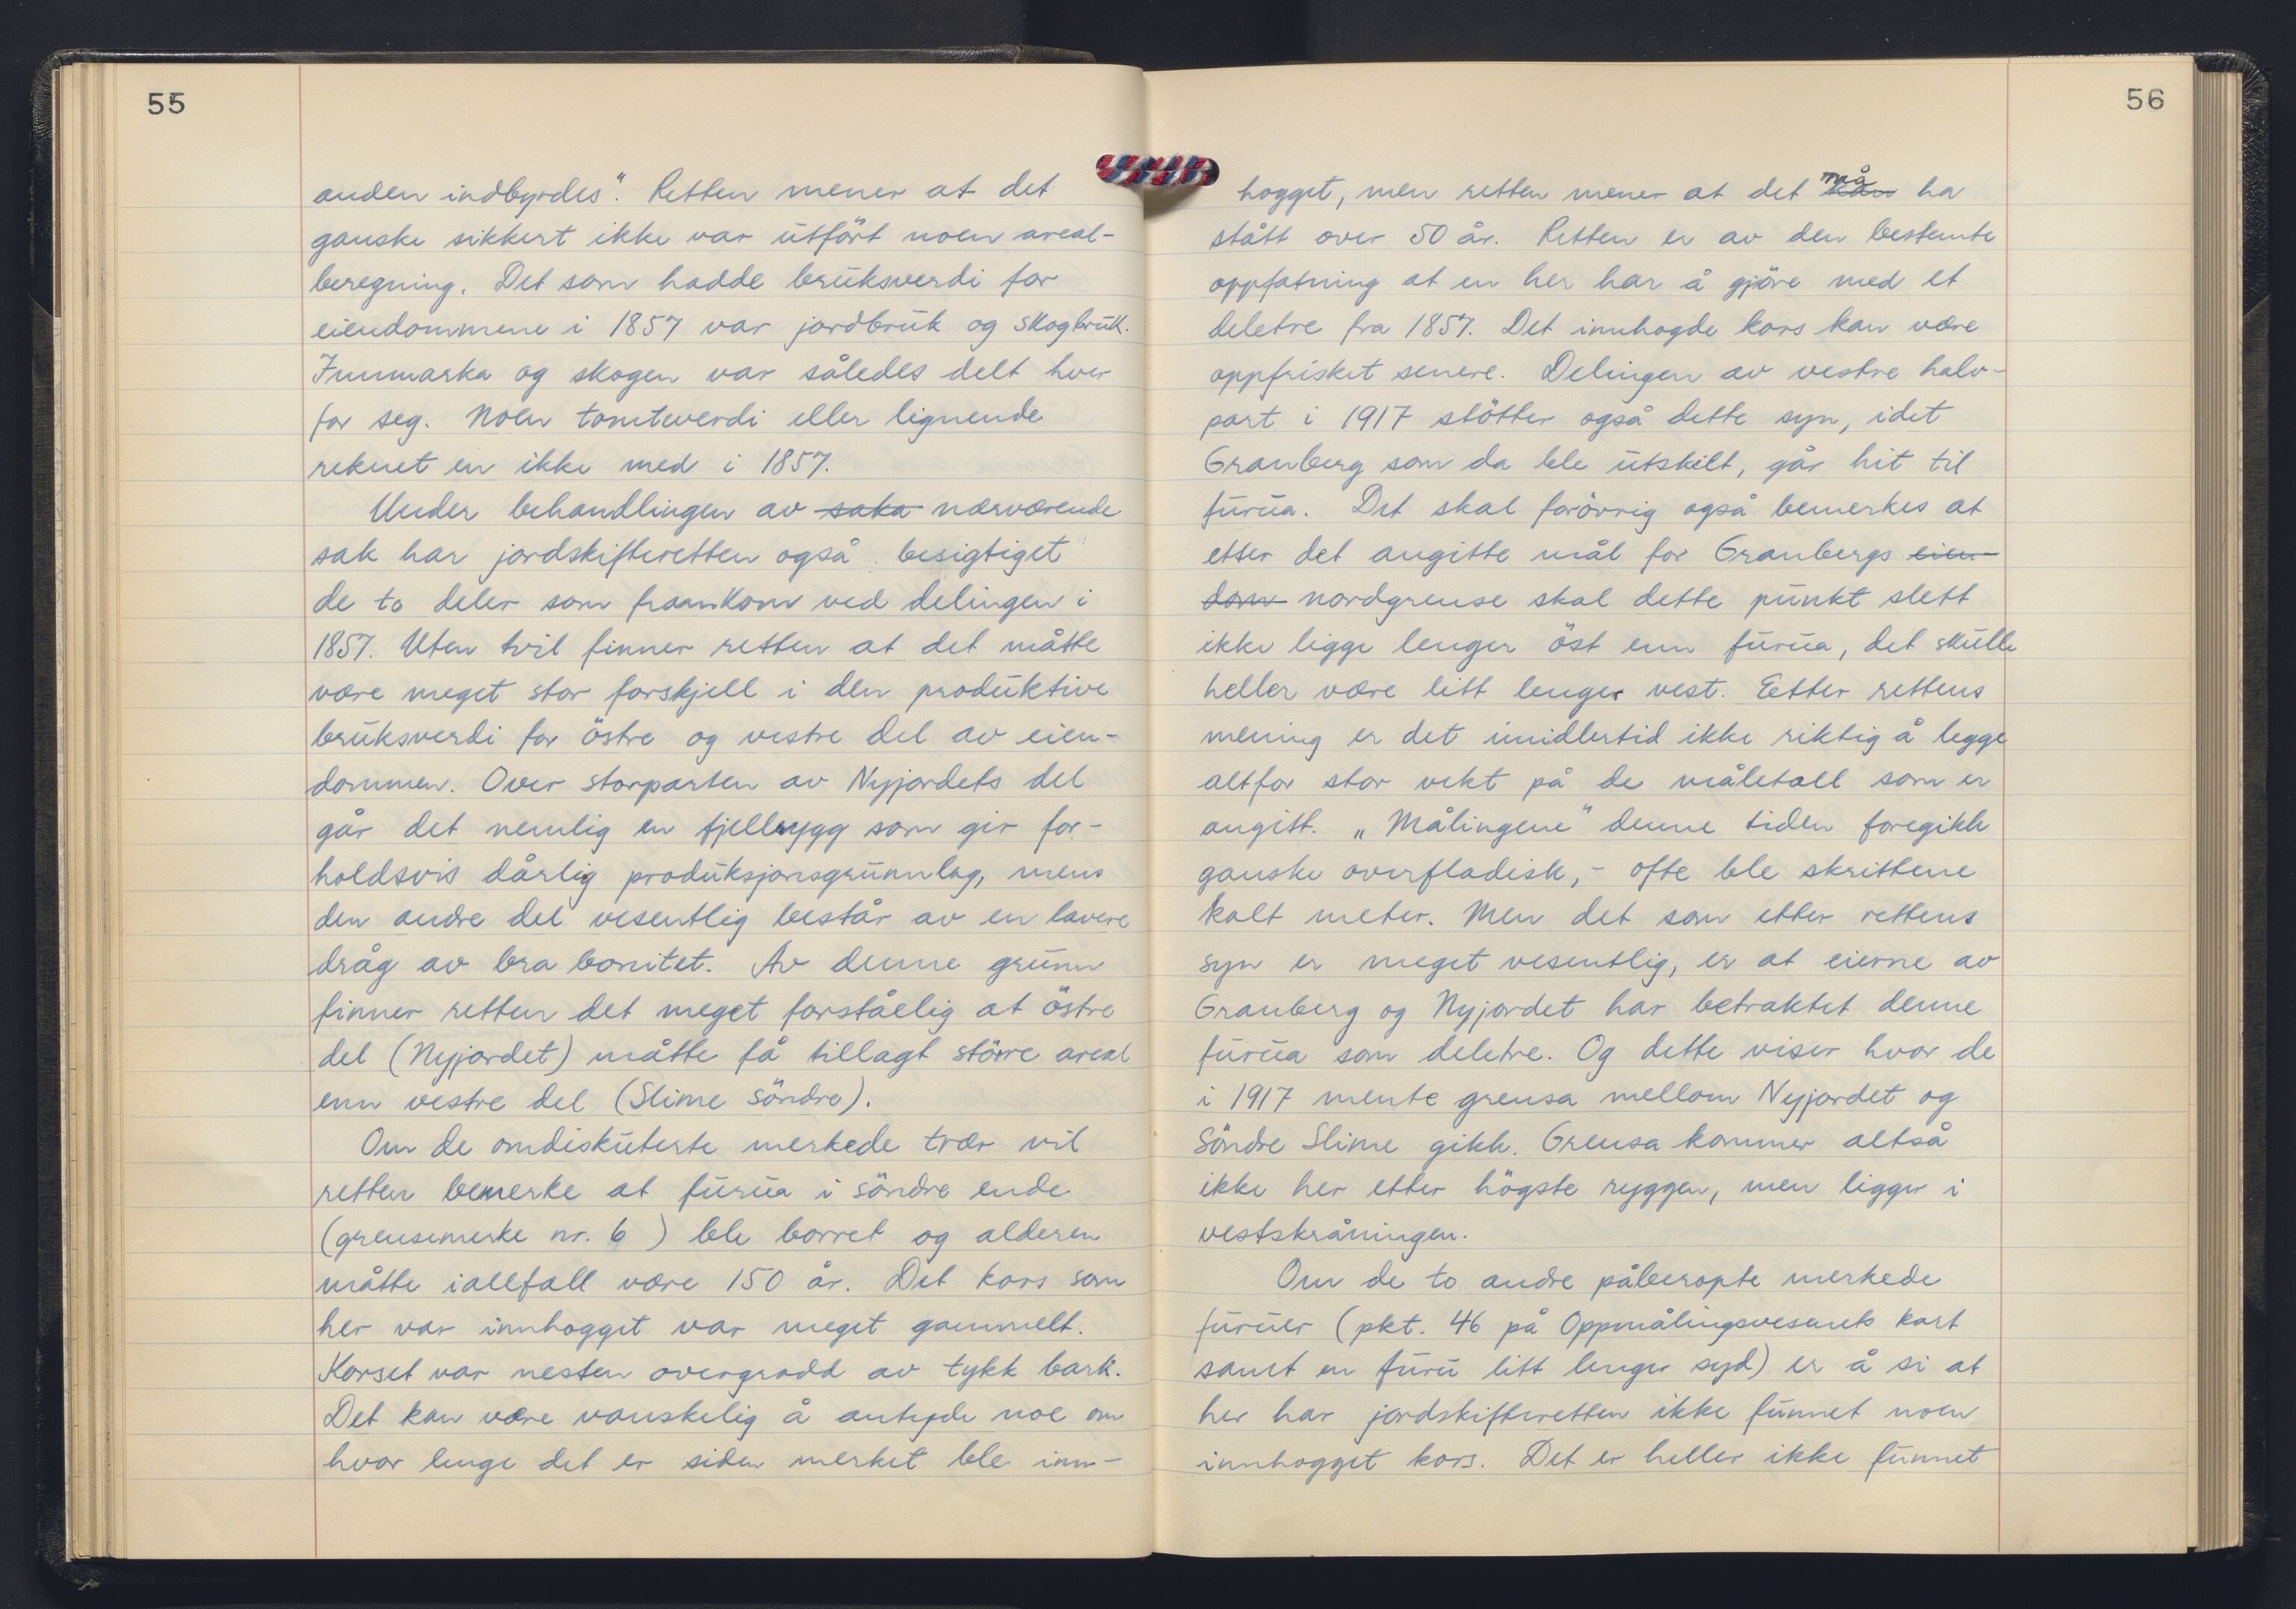 55
anden indbyrdes". Retten mener at det
ganske sikkert ikke var utført noen areal-
beregning. Det som hadde bruksverdi for
eiendommene i 1857 var jordbruk og skogbruk.
Innmarka og skogen var således delt hver
for seg. Noen tomteverdi eller lignende
reknet en ikke med i 1857.
Under behandlingen av saka nærværende
sak har jordskifteretten også besigtiget
de to deler som framkom ved delingen i
1857. Uten tvil finner retten at det måtte
være meget stor forskjell i den produktive
bruksverdi for östre og vestre del av eien-
dommen. Over storparten av Nyjordets del
går det nemlig en fjellrygg som gir for-
holdsvis dårlig produksjonsgrunnlag, mens
den andre del vesentlig består av en lavere
dråg av bra bonitet. Av denne grunn
finner retten det meget forståelig at östre
del (Nyjordet) måtte få tillagt större areal
enn vestre del (Slime Söndre).
Om de omdiskuterte merkede trær vil
retten bemerke at furua i söndre ende
(grensemerke nr. 6 ) ble borret og alderen
måtte iallfall være 150 år. Det kors som
her var innhogget var meget gammelt.
Korset var nesten overgrodd av tykk bark.
Det kan være vanskelig å antyde noe om
hvor lenge det er siden merket ble inn-
56
hogget, men retten mener at det kan må ha
stått over 50 år. Retten er av den bestemte
oppfatning at en her har å gjöre med et
deletre fra 1857. Det innhogde kors kan være
oppfrisket senere. Delingen av vestre halv-
part i 1917 stötter også dette syn, idet
Granberg som da ble utskilt, går hit til
furua. Det skal forövrig også bemerkes at
etter det angitte mål for Granbergs eien-
dom nordgrense skal dette punkt slett
ikke ligge lenger öst enn furua, det skulle
heller være litt lenger vest. Etter rettens
mening er det imidlertid ikke riktig å legge
altfor stor vekt på de måletall som er
angitt. „Målingene" denne tiden foregikk
ganske overfladisk, - ofte ble skrittene
kalt meter. Men det som etter rettens
syn er meget vesentlig, er at eierne av
Granberg og Nyjordet har betraktet denne
furua som deletre. Og dette viser hvor de
i 1917 mente grensa mellom Nyjordet og
Söndre Slime gikk. Grensa kommer altså
ikke her etter högste ryggen, men ligger i
vestskråningen.
Om de to andre påberopte merkede
furuer (pkt. 46 på Oppmålingsvesenets kart
samt en furu litt lenger syd) er å si at
her har jordskifteretten ikke funnet noen
innhogget kors. Det er heller ikke funnet